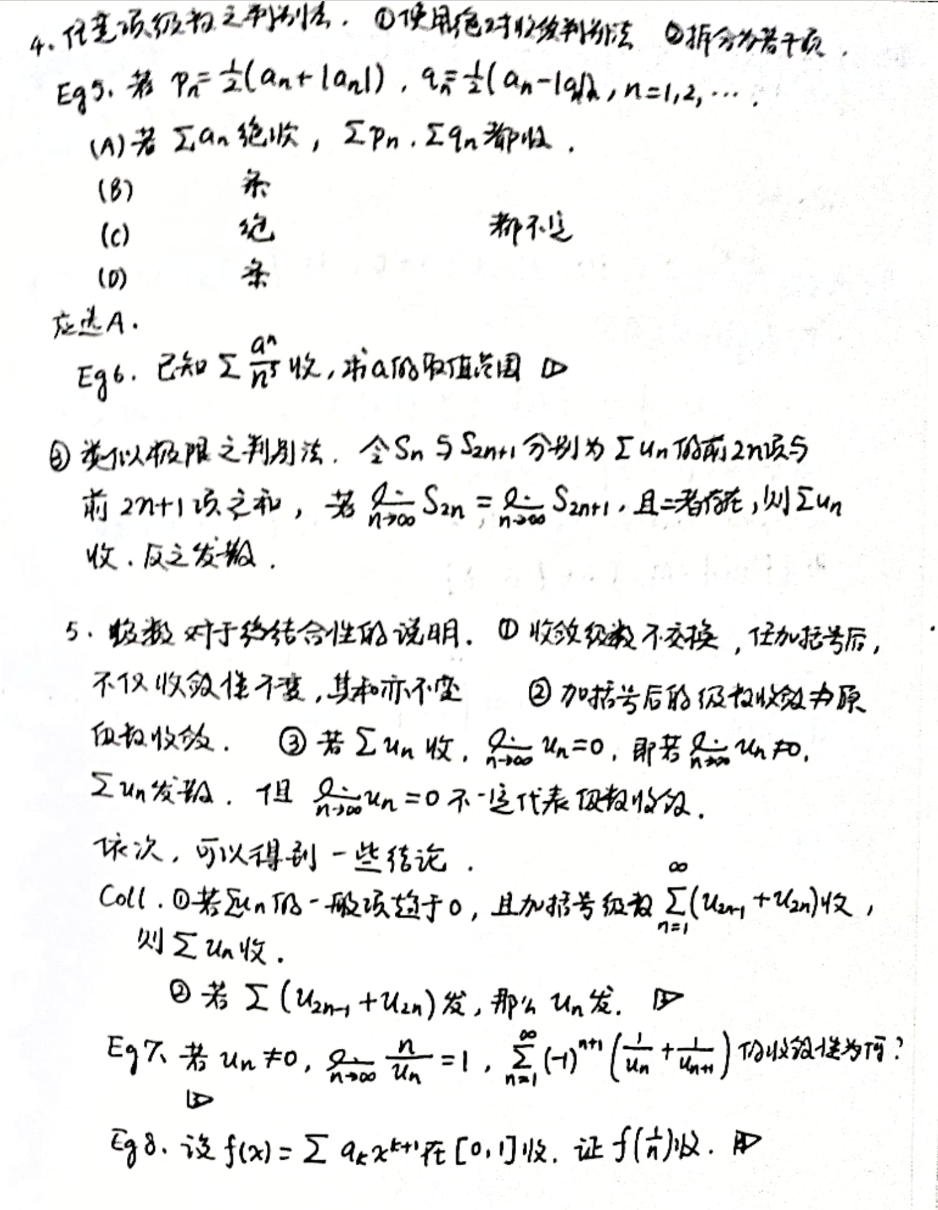 4. 任意项级数之判别法. ①使用绝对收敛判别法 ②拆分为若干项.
Eg5. 若 Pn=½(an+|an|), qn=½(an-|an|), n=1,2,….
(A) 若 Σan 绝收, ΣPn. Σqn 都收.
(B) 条
(C) 绝 都不定
(D) 条
应选A.
Eg6. 已知 Σ aⁿ/n⁵ 收, 求a的取值范围
③ 类似极限之判别法. 令Sn与S2n+1分别为Σun的前2n项与
前2n+1项之和, 若 lim n→∞ S2n = lim n→∞ S2n+1, 且二者存在, 则Σun
收. 反之发散.
5. 级数对于结合性的说明. ① 收敛级数不交换, 任加括号后,
不仅收敛性不变, 其和亦不变 ② 加括号后的级数收敛 原
级数收敛. ③ 若Σun收, lim n→∞ un=0, 即若 lim n→∞ un≠0,
Σun发散. 但 lim n→∞ un=0 不一定代表级数收敛.
依次, 可以得到一些结论.
Coll. ①若Σun的一般项趋于0, 且加括号级数 ∞Σn=1 (u2n-1+u2n)收,
则Σun收.
② 若 Σ(u2n-1+u2n)发, 那么 un发.
Eg7. 若 un≠0, lim n→∞ n/un=1, ∞Σn=1 (-1)ⁿ⁺¹(1/un+1/un+1)的收敛性为何?
Eg8. 设f(x)=Σ akx^k+1在[0,1]收. 证 f(1/n)收.